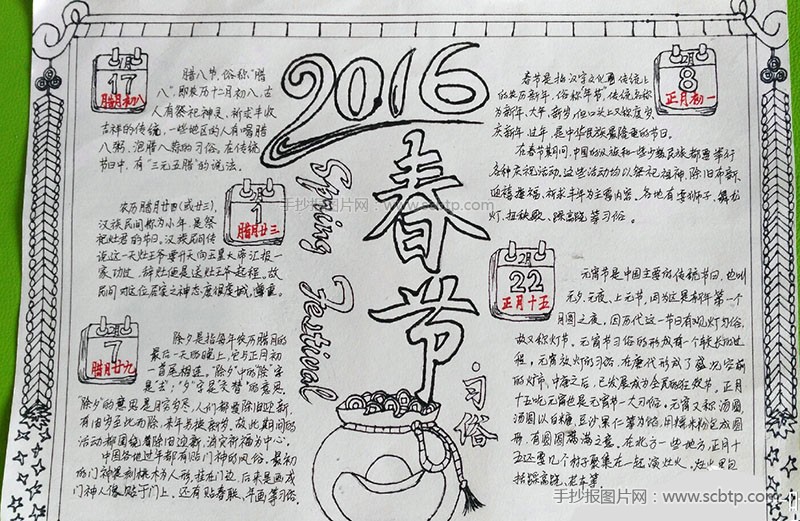 2016
春节
Spring Festival
·习俗
1月
17
腊月初八
腊八节,俗称"腊
八",即农历十二月初八,古
人有祭祀神灵、祈求丰收
吉祥的传统,一些地区的人有喝腊
八粥、泡腊八蒜的习俗。在传统
节日中,有"三元五腊"的说法。
1
腊月廿三
农历腊月廿四(或廿三),
汉族民间称为小年,是祭
祀灶君的节日。汉族民间传
说这一天灶王爷要升天向玉皇大帝汇报一
家功过,辞灶便是送灶王爷起程,故
民间对这位居家之神态度很虔诚、尊重。
7
腊月廿九
除夕是指每年农历腊月的
最后一天的晚上,它与正月初
一首尾相连。"除夕"中的"除"字
是"去","夕"字是"交替"的意思。
"除夕"的意思是月穷岁尽,人们都要除旧迎新,
有旧岁至此而除,来年另换新岁。故此期间的
活动都围绕着除旧迎新,消灾祈福为中心。
中国各地过年都有贴门神的风俗。最初
的门神是刻桃木为人形,挂在门边,后来是画成
门神人像贴于门上。还有贴春联、年画等习俗。
2月
8
正月初一
春节是指汉字文化圈传统上
的农历新年,俗称"年节",传统名称
为新年、大年、新岁,但口头上又称度岁、
庆新年、过年,是中华民族最隆重的节日。
在春节期间,中国的汉族和一些少数民族都要举行
各种庆祝活动,这些活动均以祭祀祖神、除旧布新、
迎禧接福、祈求丰年为主要内容。各地有耍狮子、舞龙
灯、扭秧歌、踩高跷等习俗。
2月
22
正月十五
元宵节是中国主要的传统节日,也叫
元夕、元夜、上元节,因为这是新年第一个
月圆之夜。因历代这一节日有观灯习俗,
故又称灯节。元宵节习俗的形成有一个较长的过
程,元宵放灯的习俗,在唐代形成了盛况空前
的灯市,中唐之后,已发展成为全民的狂欢节。正月
十五吃元宵也是元宵节一大习俗。元宵又称汤圆、
汤圆以白糖、豆沙果仁等为馅,用糯米粉包成圆
形,有团圆美满之意。在北方一些地方,正月十
五还要几个村子聚集在一起演灶火,灶火里包
括踩高跷、花车等
手抄报图片网 - www.scbtp.com
手抄报图片网:www.scbtp.com